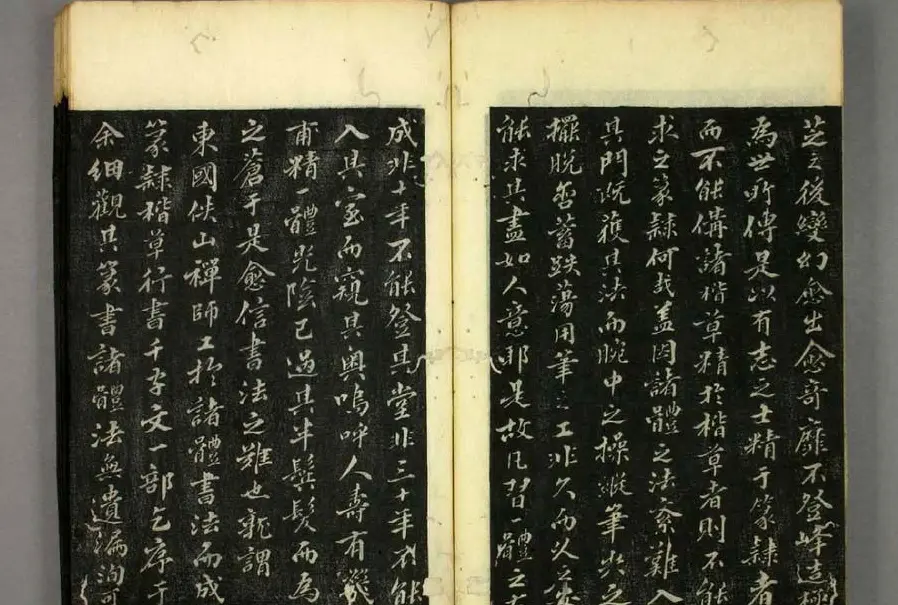 芝之後變幻愈出愈奇靡不登峰造極
為世所傳是以有志之士精于篆隸者
而不能備諸楷草精於楷草者則不能
求之篆隸何哉蓋因諸體之法奈難入
其門既獲其法而腕中之操縱筆尖之
擺脫含蓄跌蕩用筆之工非久而久之安
能求其盡如人意耶是故凡習一體之
成非十年不能登其堂非三十年不能
入其室而窺其奧嗚呼人壽有幾
甫精一體光陰已過其半鬚髮而為
之蒼于是愈信書法之難也詎謂
東國佚山禪師工於諸體書法而成
篆隸楷草行書千字文一部乞序于
余細觀其篆書諸體法無遺漏洵可